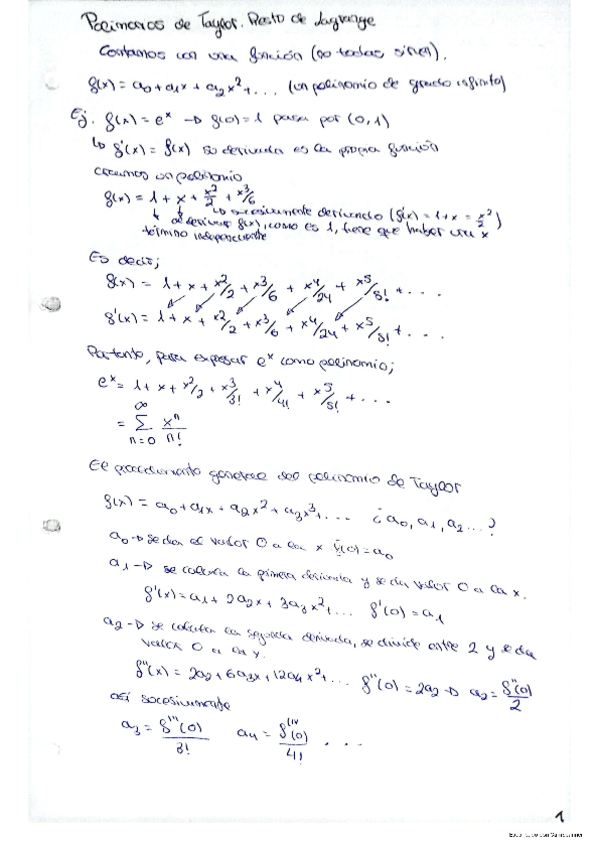 Polinomios de Taylor. Resto de Lagrange
Contamos con una función (no todas sirven).
f(x) = a₀ + a₁x + a₂x² + ... (un polinomio de grado infinito)
Ej. f(x) = eˣ → f(0) = 1 pasa por (0,1)
↳ f'(x) = f(x) su derivada es la propia función
creamos un polinomio
f(x) = 1 + x + x²/2 + x³/6
↳ sucesivamente derivando (f'(x) = 1 + x = x²/2)
↳ al derivar f(x), como es 1, tiene que haber una x
término independiente
Es decir;
f(x) = 1 + x + x²/2 + x³/6 + x⁴/24 + x⁵/5! + ...
f'(x) = 1 + x + x²/2 + x³/6 + x⁴/24 + x⁵/5! + ...
Por tanto, para expresar eˣ como polinomio;
eˣ = 1 + x + x²/2 + x³/3! + x⁴/4! + x⁵/5! + ...
= ∞ Σ n=0 xⁿ/n!
El procedimiento general del polinomio de Taylor
f(x) = a₀ + a₁x + a₂x² + a₃x³ + ... ¿a₀, a₁, a₂...?
a₀ → se da el valor 0 a la x f(0) = a₀
a₁ → se calcula la primera derivada y se da valor 0 a la x.
f'(x) = a₁ + 2a₂x + 3a₃x² + ... f'(0) = a₁
a₂ → se calcula la segunda derivada, se divide entre 2 y se da
valor 0 a la x.
f''(x) = 2a₂ + 6a₃x + 12a₄x² + ... f''(0) = 2a₂ → a₂ = f''(0)/2
así sucesivamente
a₃ = f'''(0)/3! a₄ = fᴵⱽ(0)/4! ...
1